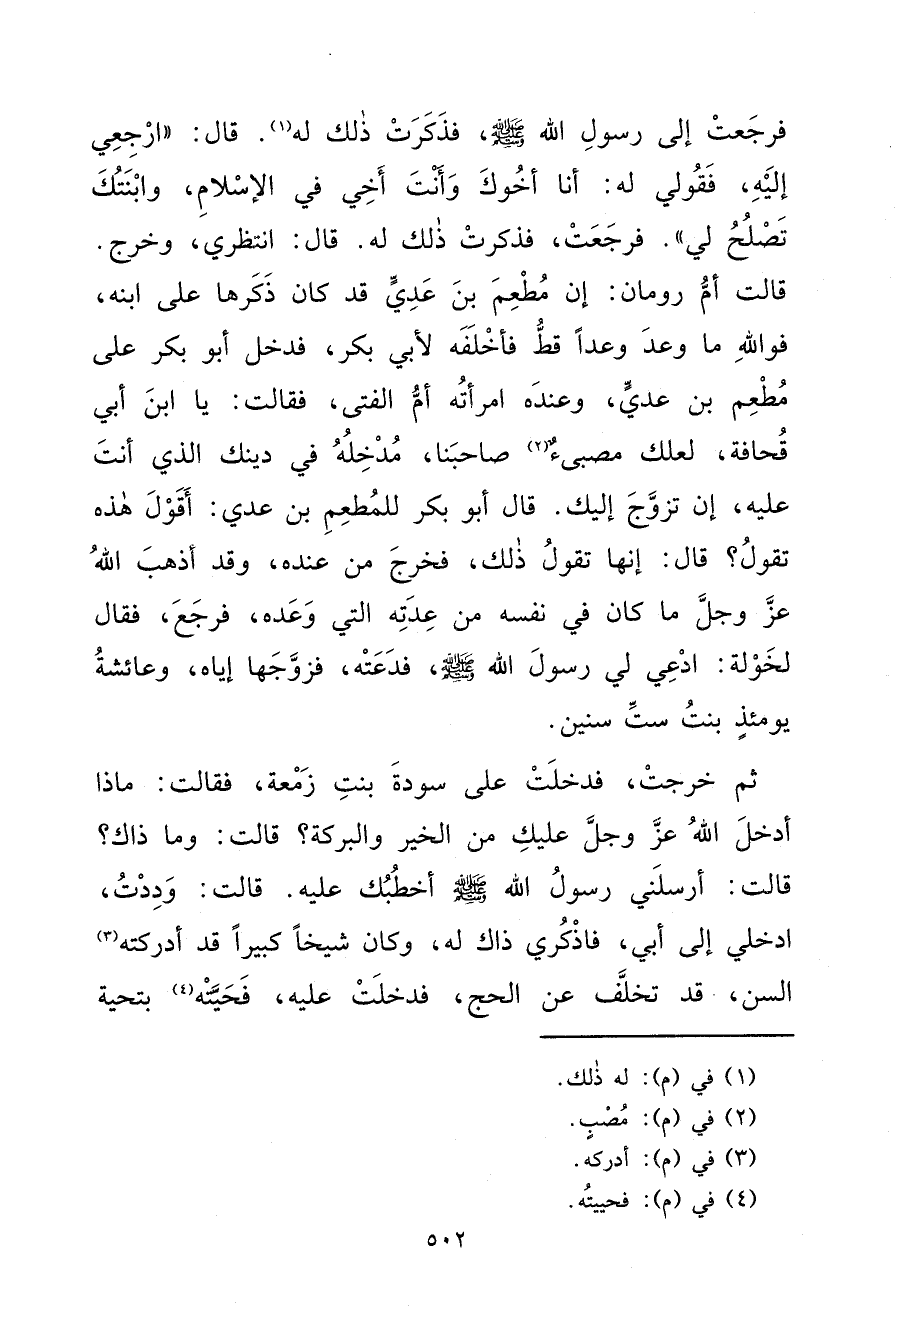 فرجَعتْ إلى رسولِ الله ﷺ، فذَكَرَتْ ذٰلك له(١). قال: «ارْجِعِي
إلَيْهِ، فَقُولي له: أنا أخُوكَ وَأَنْتَ أَخِي في الإسْلامِ، وابْنَتُكَ
تَصْلُحُ لي». فرجَعَتْ، فذكرتْ ذٰلك له. قال: انتظري، وخرج.
قالت أمُّ رومان: إن مُطْعِمَ بنَ عَدِيٍّ قد كان ذَكَرها على ابنه،
فواللهِ ما وعدَ وعداً قطُّ فأخْلَفَه لأبي بكر، فدخل أبو بكر على
مُطْعِم بن عديٍّ، وعندَه امرأتُه أمُّ الفتى، فقالت: يا ابنَ أبي
قُحافة، لعلك مصبىءٌ(٢) صاحبَنا، مُدْخِلُهُ في دينك الذي أنتَ
عليه، إن تزوَّجَ إليك. قال أبو بكر للمُطعِمِ بن عدي: أَقَوْلَ هٰذه
تقولُ؟ قال: إنها تقولُ ذٰلك، فخرجَ من عنده، وقد أذهبَ اللهُ
عزَّ وجلَّ ما كان في نفسه من عِدَتِه التي وَعَده، فرجَعَ، فقال
لخَوْلة: ادْعِي لي رسولَ الله ﷺ، فدَعَتْه، فزوَّجَها إياه، وعائشةُ
يومئذٍ بنتُ ستِّ سنين.
ثم خرجتْ، فدخلَتْ على سودةَ بنتِ زَمْعة، فقالت: ماذا
أدخلَ اللهُ عزَّ وجلَّ عليكِ من الخير والبركة؟ قالت: وما ذاك؟
قالت: أرسلَني رسولُ الله ﷺ أخطبُك عليه. قالت: وَدِدْتُ،
ادخلي إلى أبي، فاذْكُري ذاك له، وكان شيخاً كبيراً قد أدركته(٣)
السن، قد تخلَّف عن الحج، فدخلَتْ عليه، فَحَيَّتْه(٤) بتحية
(١) في (م): له ذٰلك.
(٢) في (م): مُصْبٍ.
(٣) في (م): أدركه.
(٤) في (م): فحييتُه.
٥٠٢